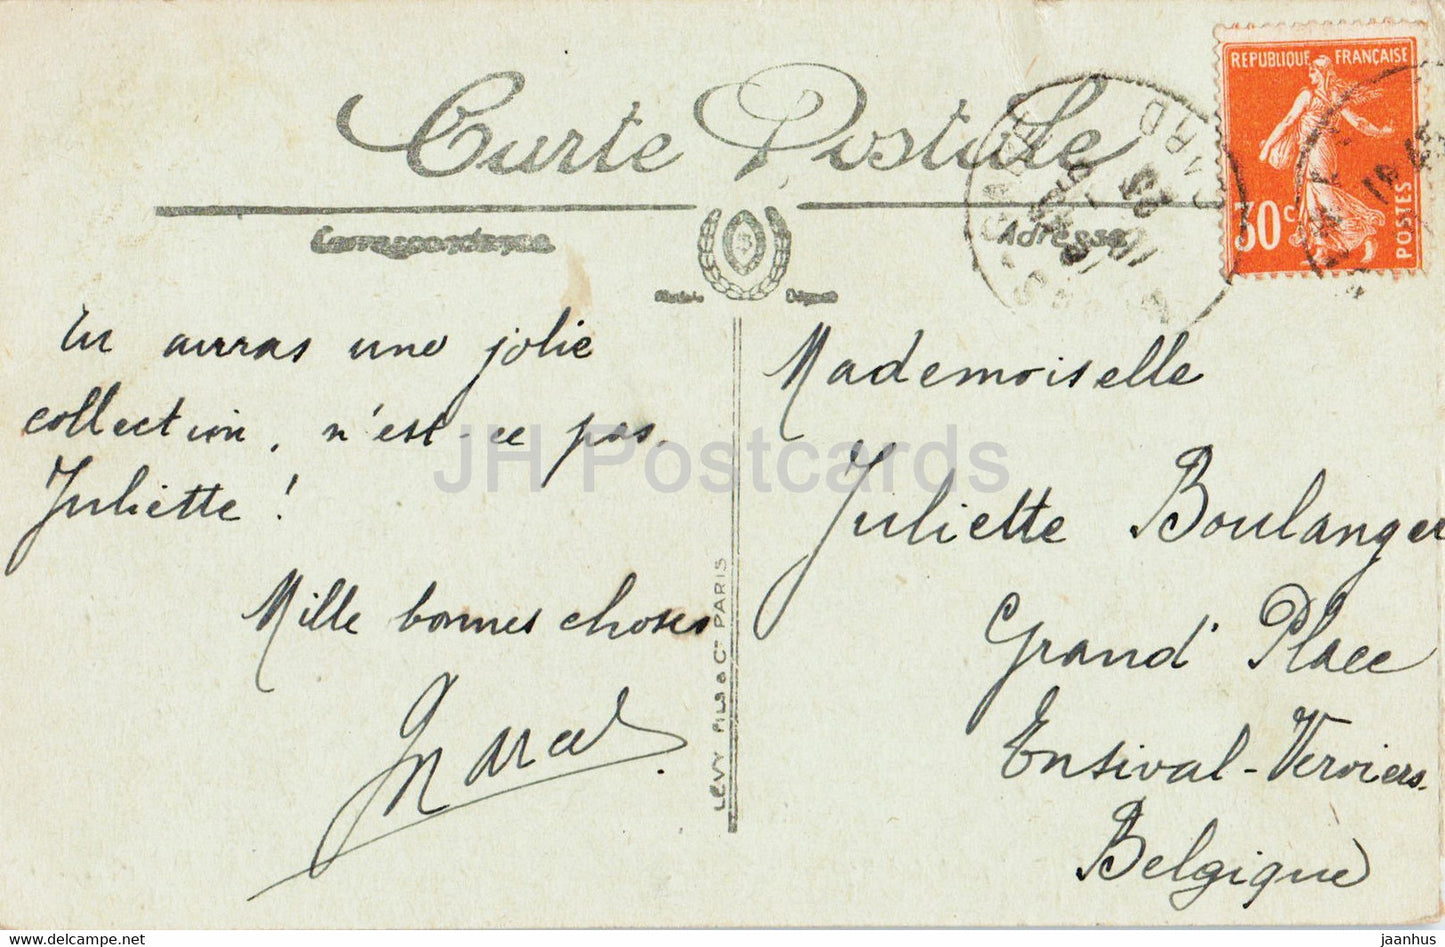 Carte Postale
Correspondance
Adresse
REPUBLIQUE FRANÇAISE
30c
POSTES
Tu auras une jolie
collection, n'est-ce pas,
Juliette !
Mille bonnes choses
Marcel
LÉVY FILS & Cie PARIS
Mademoiselle
Juliette Boulanger
Grand' Place
Ensival-Verviers
Belgique
JH Postcards
jaanhus.com
jaanhus